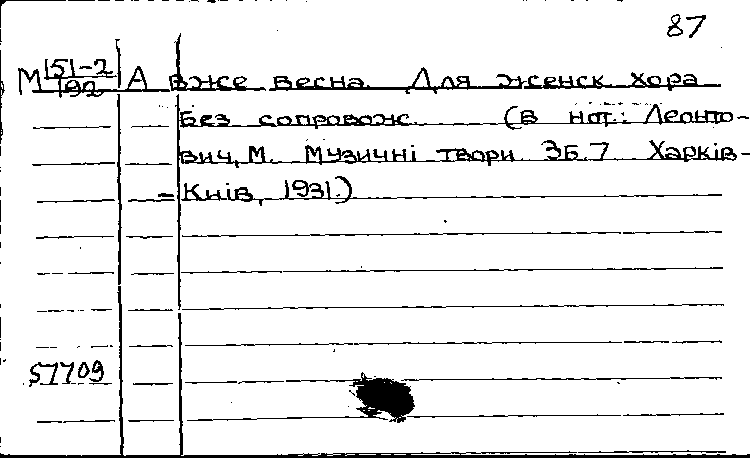 87
М 151-2/192 А вже весна. Для женск хора
без сопровож. (в нот.: Леонто-
вич, М. Музичні твори Зб. 7 Харків-
-Київ, 1931.)
57709